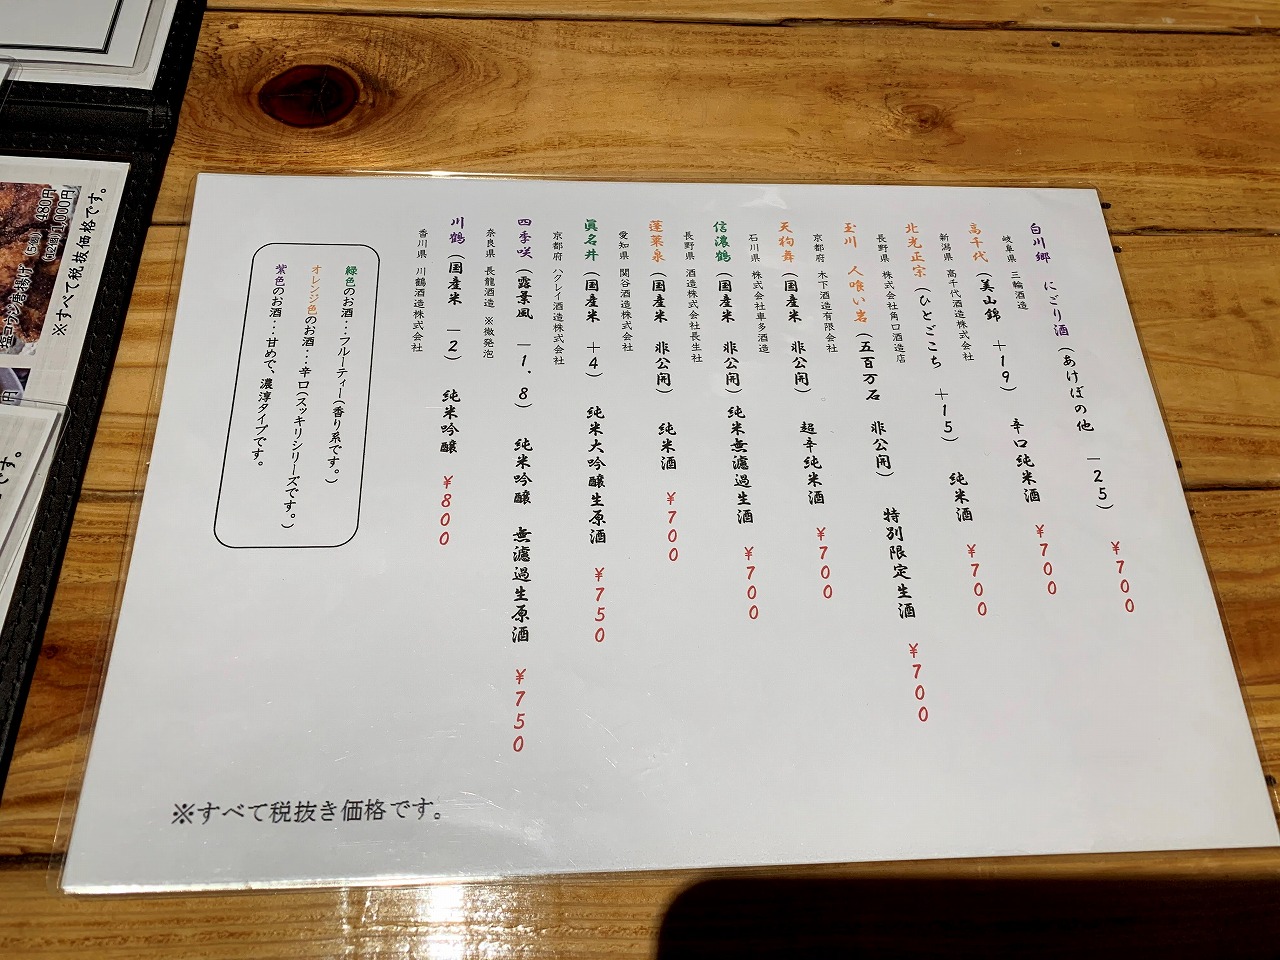 白川郷 にごり酒(あけぼの他 －25) ￥700
岐阜県 三輪酒造
高千代(美山錦 ＋19) 辛口純米酒 ￥700
新潟県 高千代酒造株式会社
北光正宗(ひとごこち ＋15) 純米酒 ￥700
長野県 株式会社角口酒造店
玉川 人喰い岩(五百万石 非公開) 特別限定生酒 ￥700
京都府 木下酒造有限会社
天狗舞(国産米 非公開) 超辛純米酒 ￥700
石川県 株式会社車多酒造
信濃鶴(国産米 非公開) 純米無濾過生酒 ￥700
長野県 酒造株式会社長生社
蓬莱泉(国産米 非公開) 純米酒 ￥700
愛知県 関谷酒造株式会社
眞名井(国産米 ＋4) 純米大吟醸生原酒 ￥750
京都府 ハクレイ酒造株式会社
四季咲(露葉風 －1.8) 純米吟醸 無濾過生原酒 ￥750
奈良県 長龍酒造 ※微発泡
川鶴(国産米 －2) 純米吟醸 ￥800
香川県 川鶴酒造株式会社
緑色のお酒･･･フルーティー(香り系です。)
オレンジ色のお酒･･･辛口(スッキリシリーズです。)
紫色のお酒･･･甘めで、濃淳タイプです。
※すべて税抜き価格です。
※すべて税抜価格です。
塩コウジ唐揚げ (5個) 480円
(12個)1,000円
円
です。